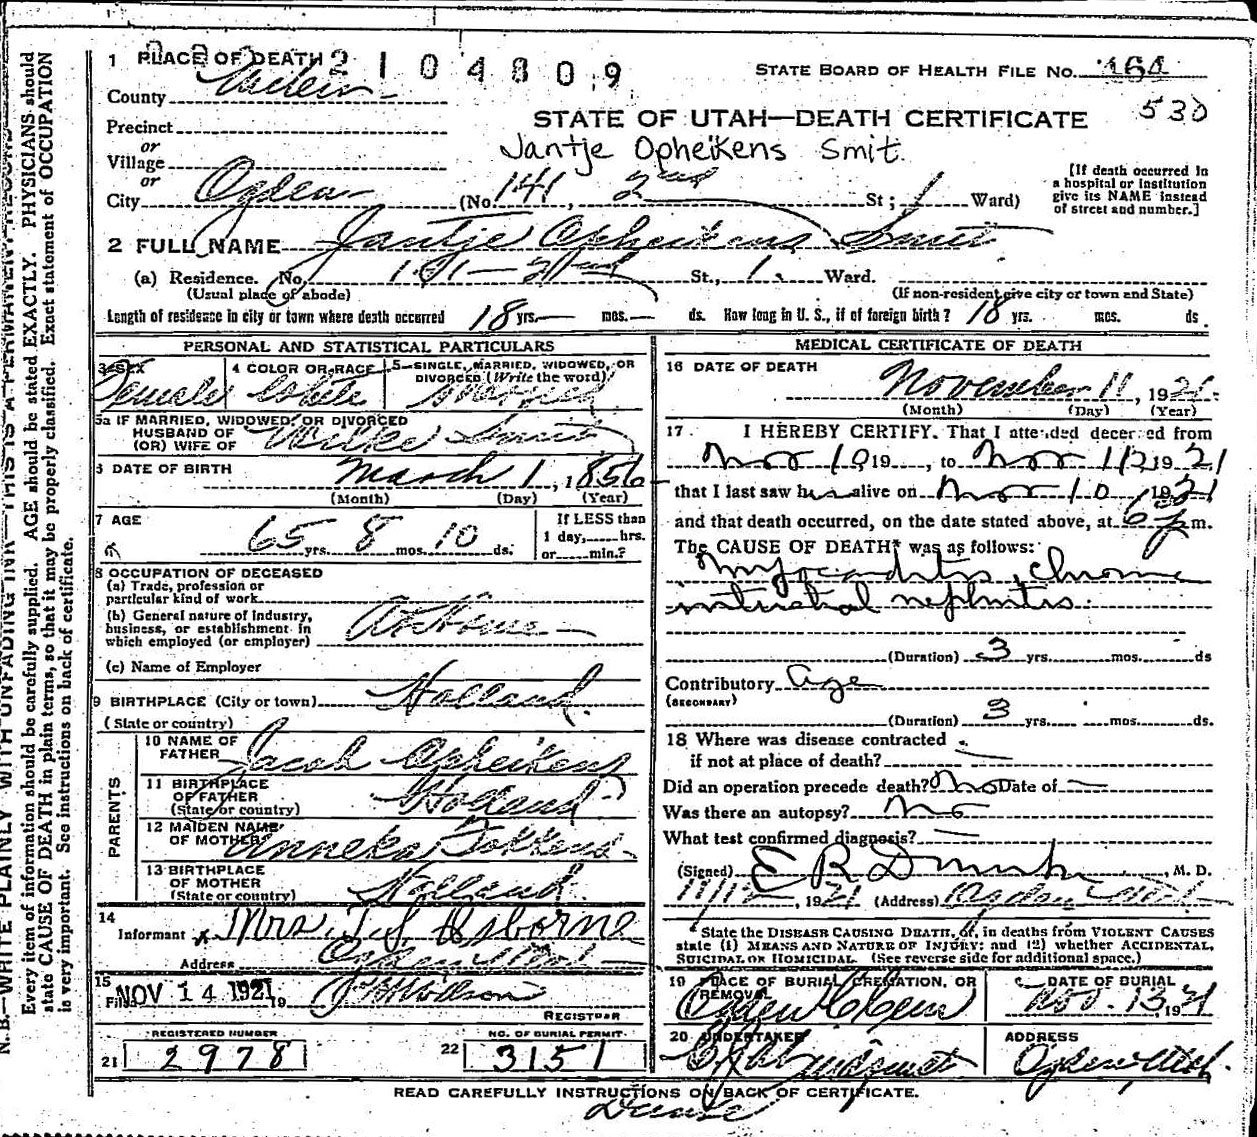 1 PLACE OF DEATH 2 1 0 4 8 0 9
STATE BOARD OF HEALTH FILE No. 164
County
530
STATE OF UTAH—DEATH CERTIFICATE
Precinct
or
Jantje Opheikens Smit.
Village
or
City Ogden (No. 141, 2nd St; 1 Ward)
[If death occurred in
a hospital or institution
give its NAME instead
of street and number.]
2 FULL NAME Jantje Opheikens Smit
(a) Residence. No. 141—2nd St., 1. Ward.
(Usual place of abode)
(If non-resident give city or town and State)
Length of residence in city or town where death occurred 18 yrs.— mos.— ds. How long in U. S., if of foreign birth? 18 yrs. mos. ds.
PERSONAL AND STATISTICAL PARTICULARS
3 SEX
Female
4 COLOR OR RACE
White
5 SINGLE, MARRIED, WIDOWED, OR
DIVORCED (Write the word)
Married
5a IF MARRIED, WIDOWED, OR DIVORCED
HUSBAND OF
(OR) WIFE OF Wilke Smit
6 DATE OF BIRTH March 1, 1856
(Month) (Day) (Year)
7 AGE
65 yrs. 8 mos. 10 ds.
If LESS than
1 day,____hrs.
or____min.?
8 OCCUPATION OF DECEASED
(a) Trade, profession or
particular kind of work
(b) General nature of industry,
business, or establishment in
which employed (or employer) At Home
(c) Name of Employer
9 BIRTHPLACE (City or town) Holland
(State or country)
PARENTS
10 NAME OF
FATHER Jacob Opheikens
11 BIRTHPLACE
OF FATHER Holland
(State or country)
12 MAIDEN NAME
OF MOTHER Anneka
13 BIRTHPLACE
OF MOTHER Holland
(State or country)
14
Informant x Mrs. T. J. Osborne
Address Ogden Utah
15
Filed NOV 14 1921 19
REGISTRAR
REGISTERED NUMBER
21 2978
NO. OF BURIAL PERMIT
22 3151
MEDICAL CERTIFICATE OF DEATH
16 DATE OF DEATH
November 11, 1921.
(Month) (Day) (Year)
17 I HEREBY CERTIFY. That I attended deceased from
Nov 10 19 , to Nov 1921
that I last saw her alive on Nov 10 1921
and that death occurred, on the date stated above, at 6 p m.
The CAUSE OF DEATH* was as follows:
Myocarditis, Chronic
interstitial nephritis.
(Duration) 3 yrs. mos. ds
Contributory Age
(SECONDARY)
(Duration) 3 yrs. mos. ds.
18 Where was disease contracted
if not at place of death?
Did an operation precede death? No Date of —
Was there an autopsy? No
What test confirmed diagnosis? —
(Signed) E R , M. D.
11/12, 1921 (Address) Ogden Utah
*State the DISEASE CAUSING DEATH, or, in deaths from VIOLENT CAUSES
state (1) MEANS AND NATURE OF INJURY; and (2) whether ACCIDENTAL,
SUICIDAL OR HOMICIDAL. (See reverse side for additional space.)
19 PLACE OF BURIAL, CREMATION, OR
REMOVAL
Ogden
DATE OF BURIAL
Nov. 13 1921
20 UNDERTAKER
ADDRESS
Ogden Utah.
READ CAREFULLY INSTRUCTIONS ON BACK OF CERTIFICATE.
N. B.—WRITE PLAINLY WITH UNFADING INK—THIS IS A PERMANENT RECORD
Every item of information should be carefully supplied. AGE should be stated EXACTLY. PHYSICIANS should
state CAUSE OF DEATH in plain terms, so that it may be properly classified. Exact statement of OCCUPATION
is very important. See instructions on back of certificate.